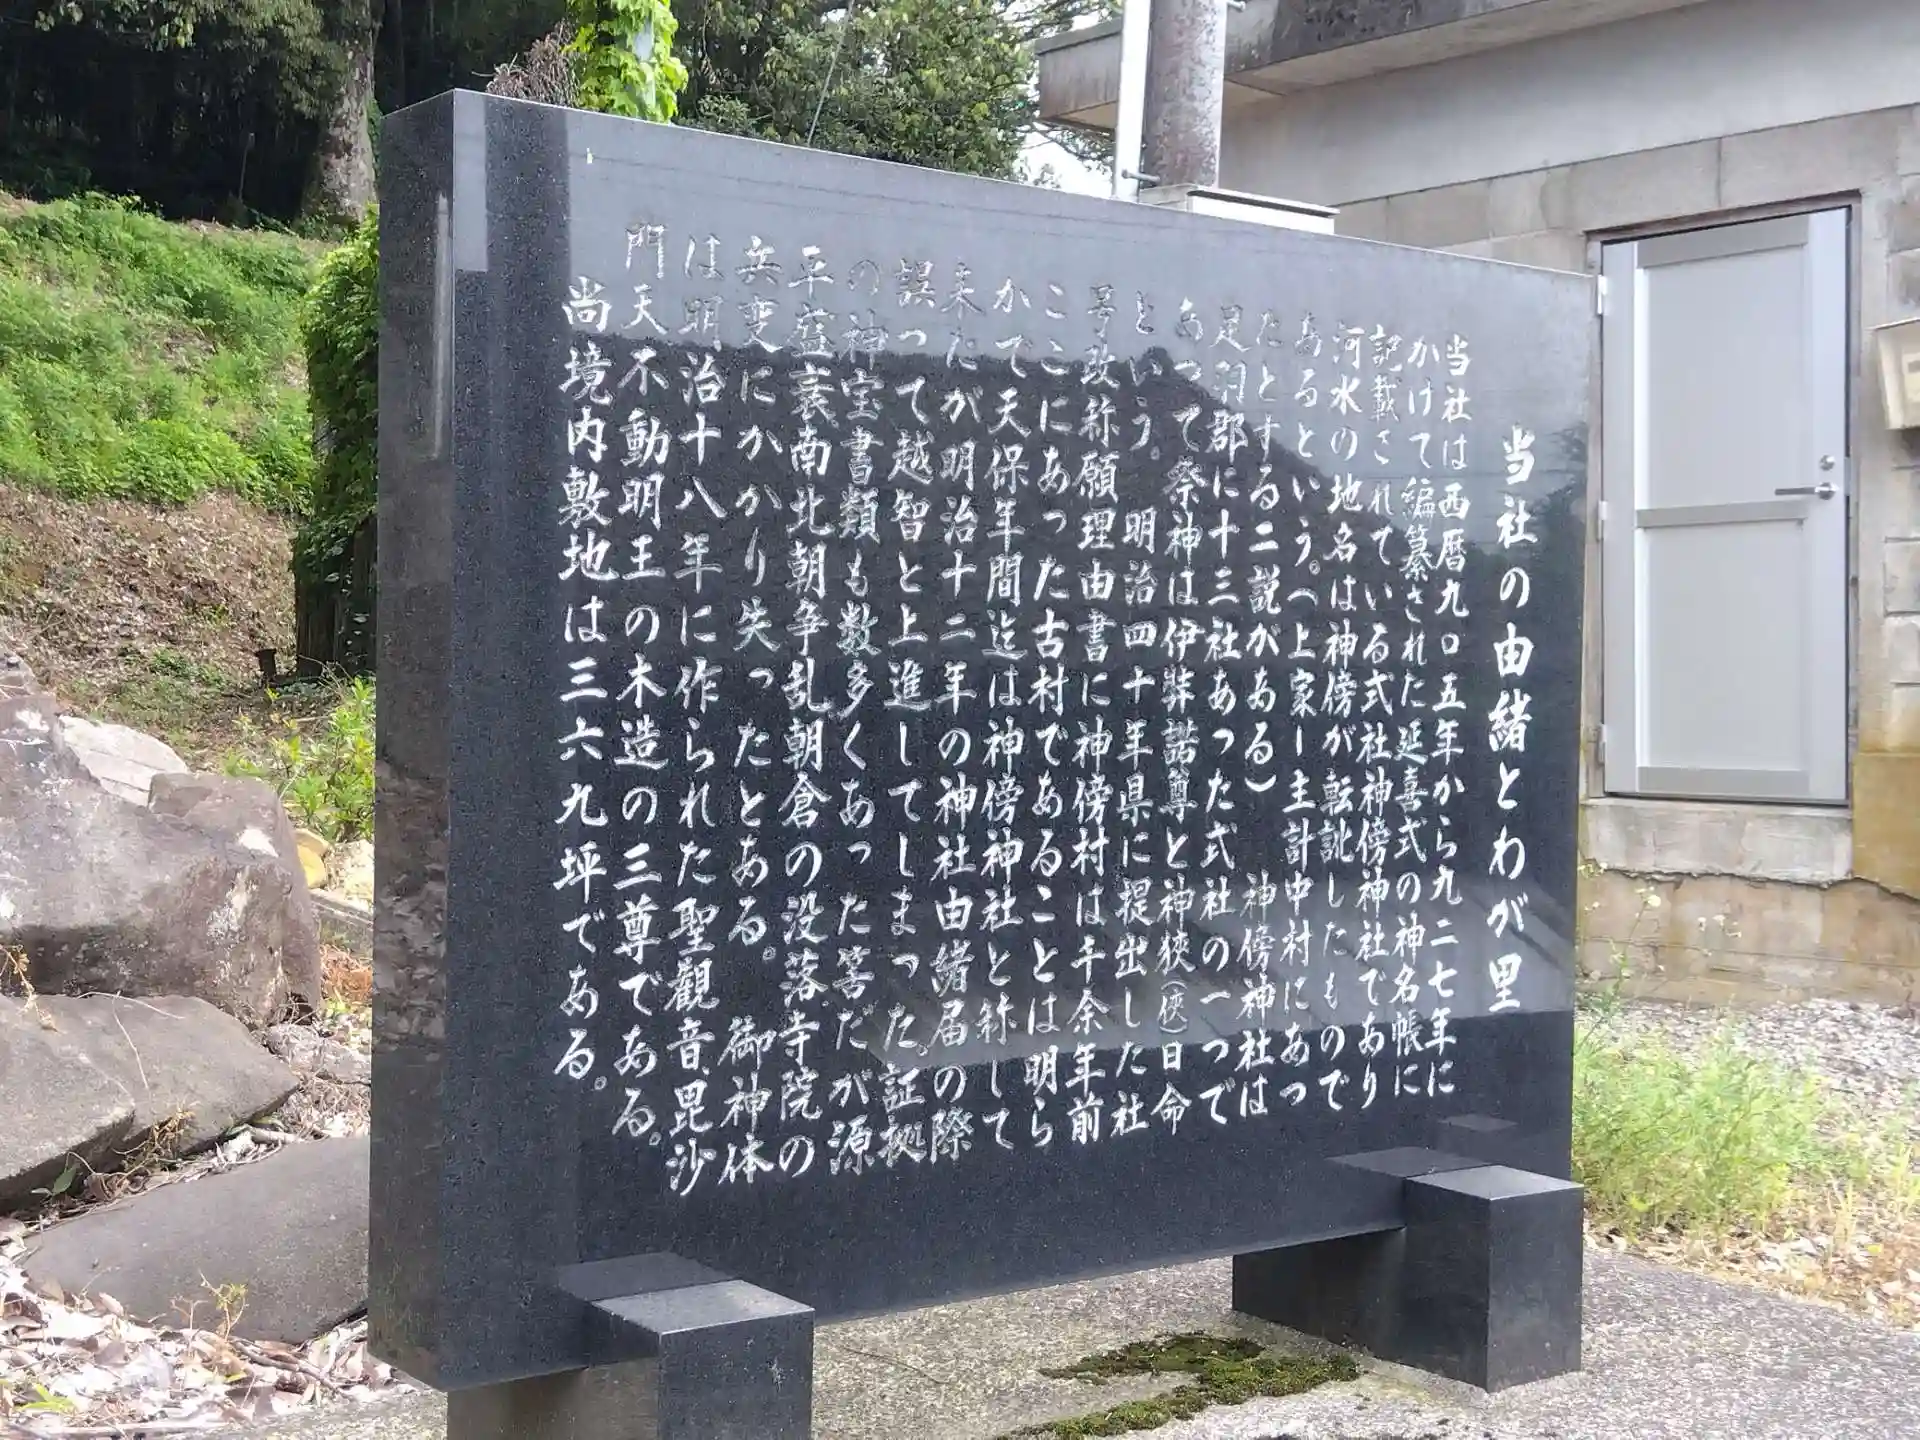 当社の由緒とわが里
当社は西暦九〇五年から九二七年に
かけて編纂された延喜式の神名帳に
記載されている式社神傍神社であり
河水の地名は神傍が転訛したもので
あるという。(上家ー主計中村にあっ
たとする二説がある) 神傍神社は
足羽郡に十三社あった式社の一つで
あって祭神は伊弉諾尊と神狹(俠)日命
という。明治四十年県に提出した社
号改称願理由書に神傍村は千余年前
ここにあった古村であることは明ら
かで天保年間迄は神傍神社と称して
来たが明治十二年の神社由緒届の際
誤って越智と上進してしまった。証拠
の神宝書類も数多くあった筈だが源
平盛衰南北朝争乱朝倉の没落寺院の
兵変にかかり失ったとある。 御神体
は明治十八年に作られた聖観音、毘沙
門天、不動明王の木造の三尊である。
尚境内敷地は三六九坪である。